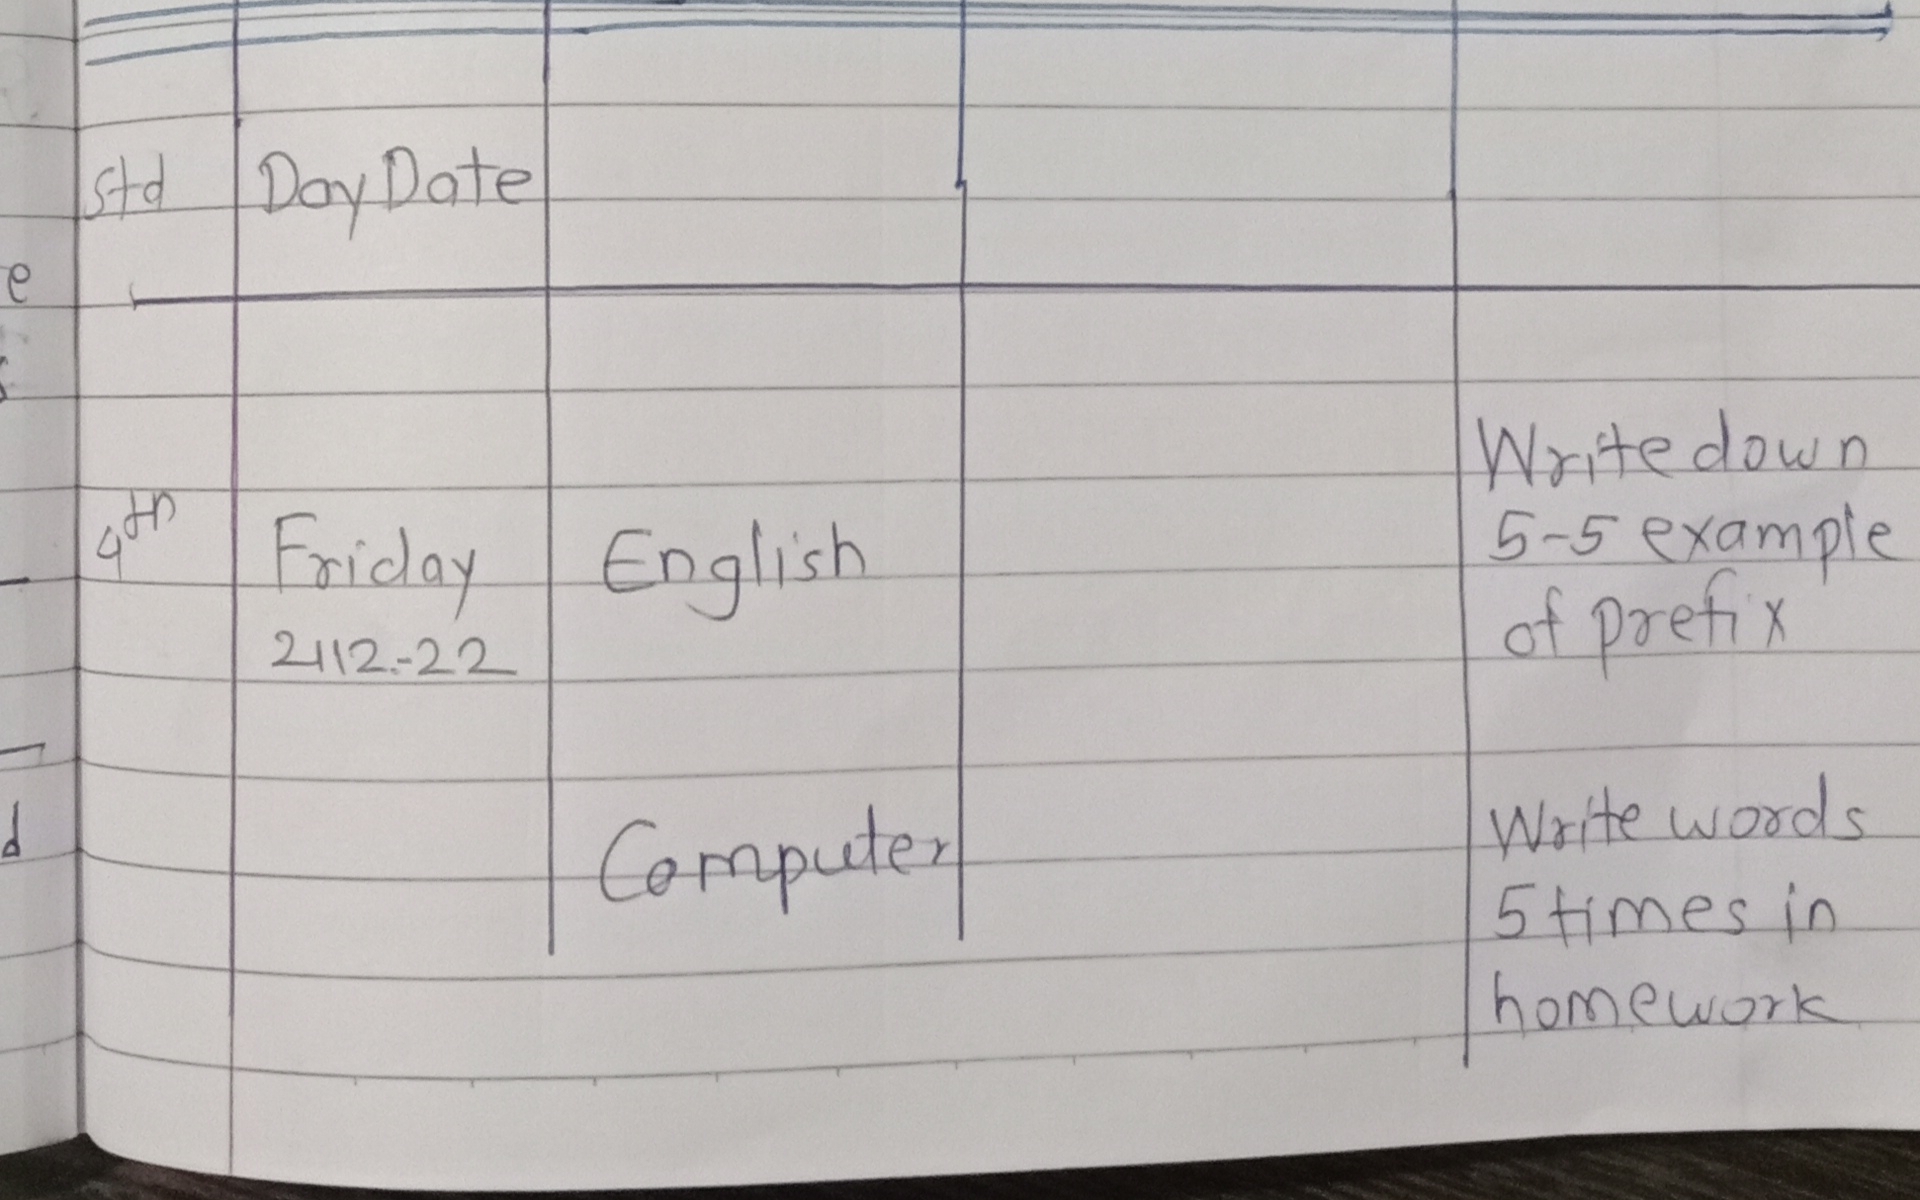 Std Day Date
Write down
4th Friday English 5-5 example
2112.-22 of prefix
Computer Write words
5 times in
homework
e
d